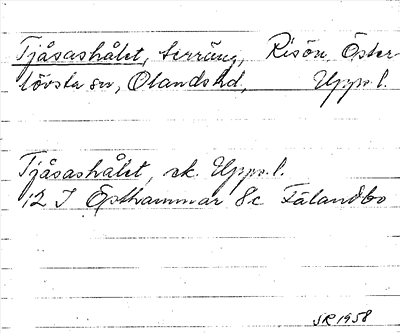 Tjåsashålet, terräng, Risön, Öster-
lövsta sn, Olands hd, Upps. l.
Tjåsashålet, ek. Upps. l.
12 I Östhammar 8c Fålandbo
SR 1958